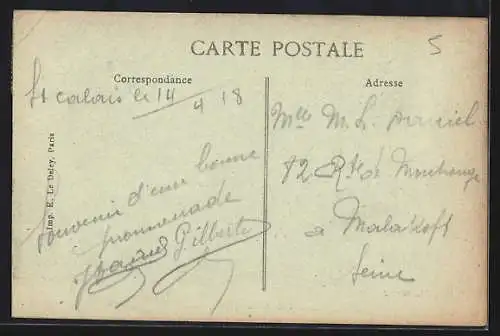 CARTE POSTALE
5
Correspondance
Adresse
St calais le 14
4 18
Souvenir d'une bonne
promenade
Gilberte
Melle M. L.
82 Rte de Montrouge
a Malakoff
Seine
Imp. E. Le Deley, Paris